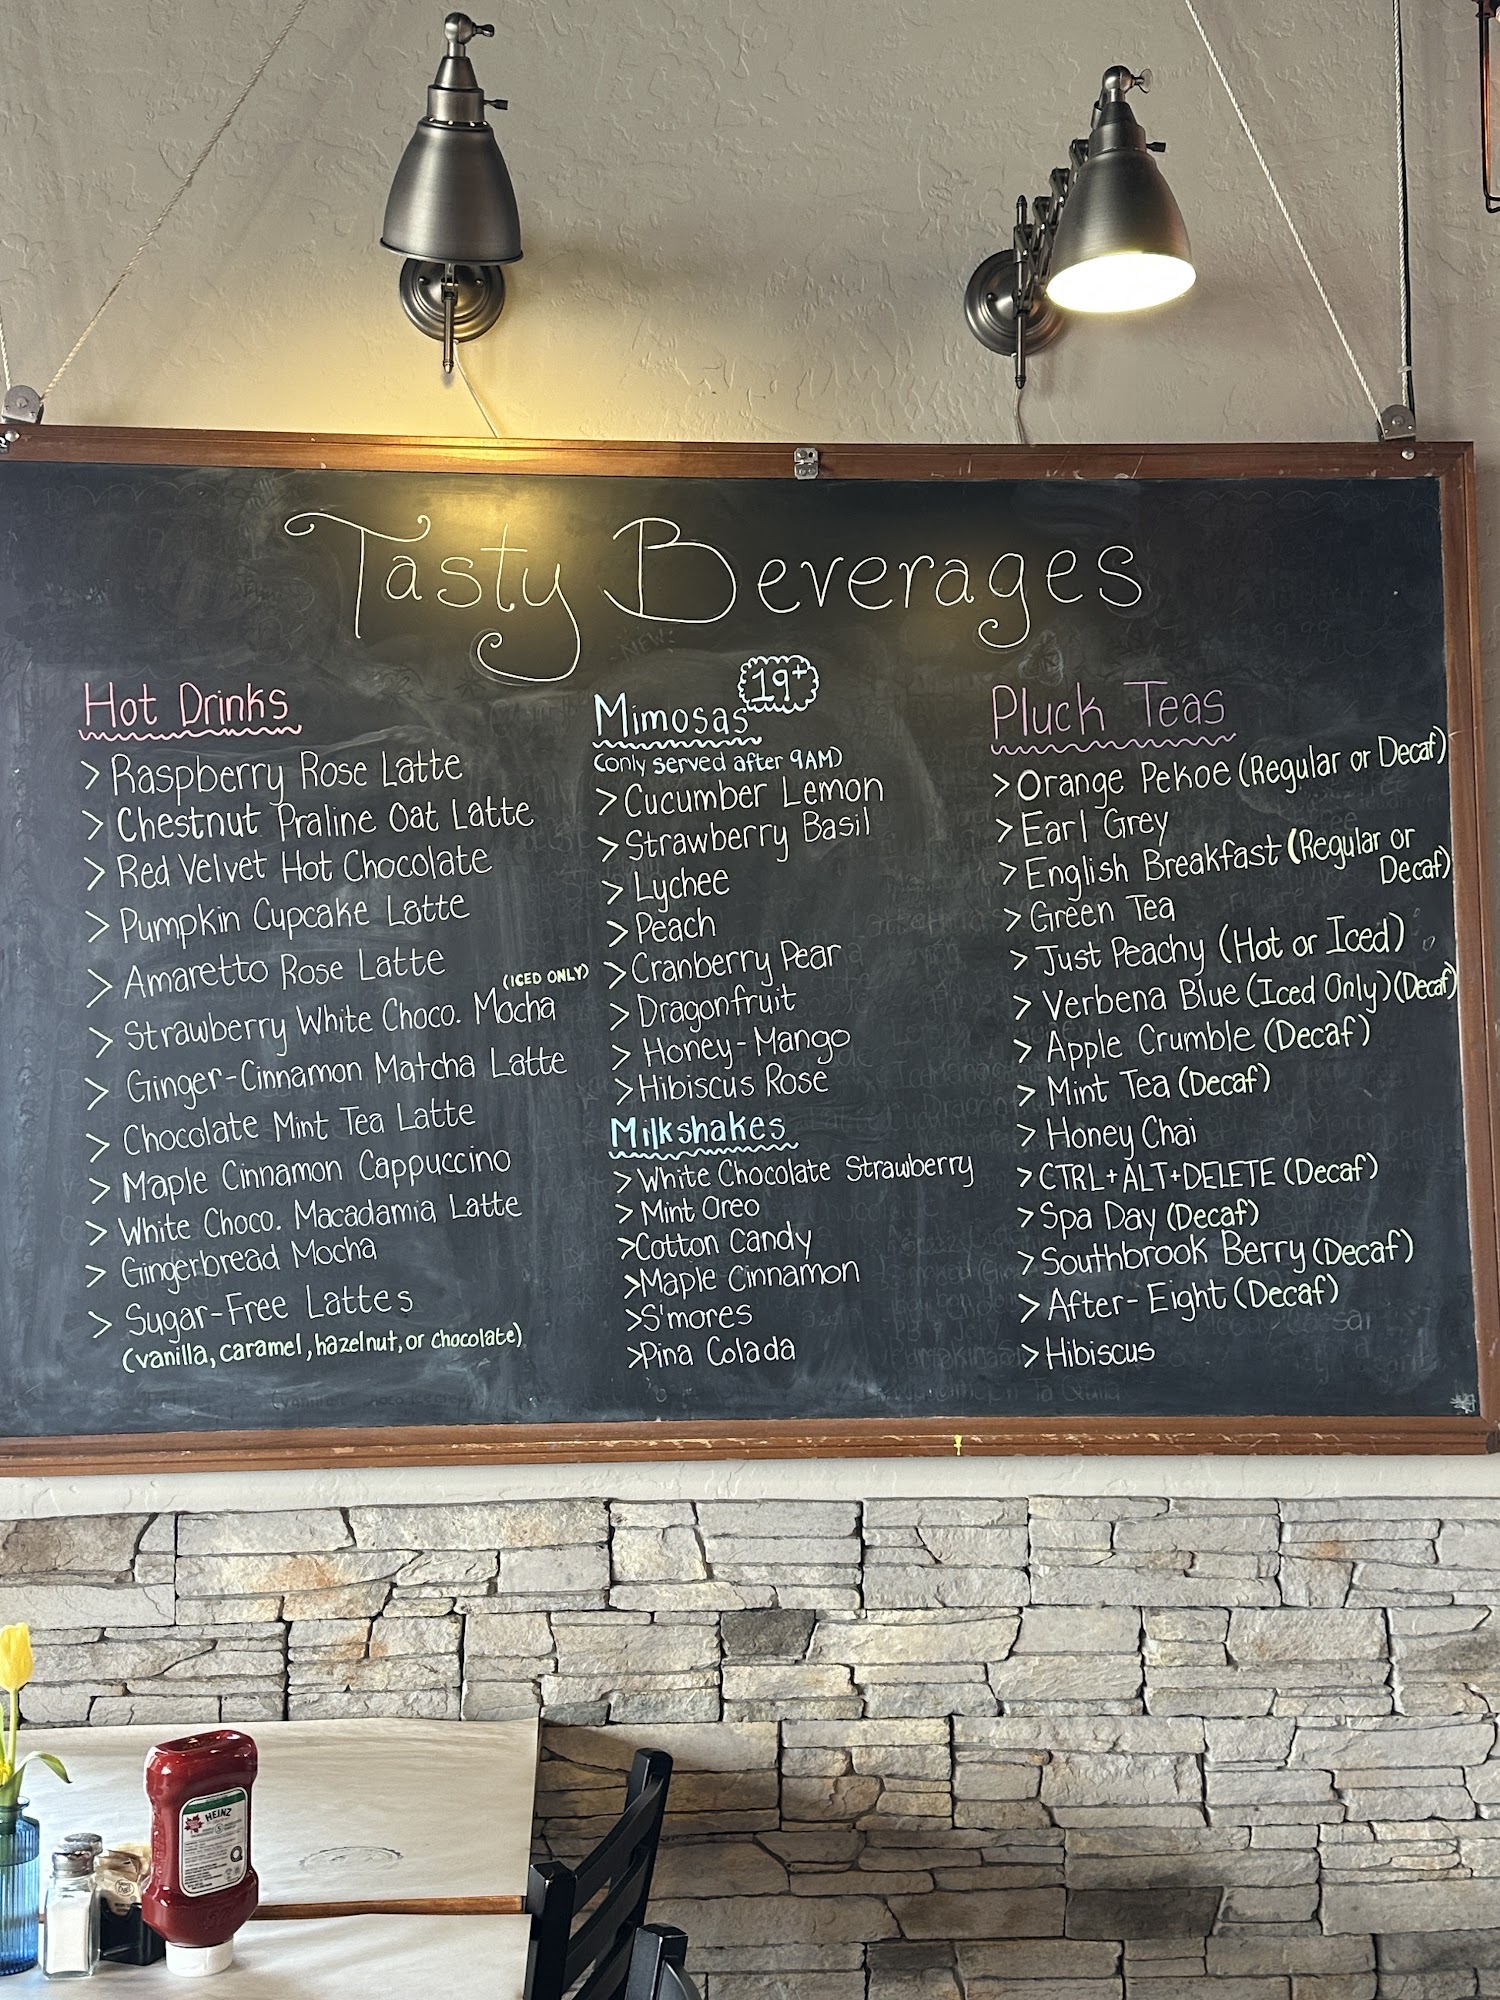 Tasty Beverages
Hot Drinks
> Raspberry Rose Latte
> Chestnut Praline Oat Latte
> Red Velvet Hot Chocolate
> Pumpkin Cupcake Latte
> Amaretto Rose Latte
(ICED ONLY)
> Strawberry White Choco. Mocha
> Ginger-Cinnamon Matcha Latte
> Chocolate Mint Tea Latte
> Maple Cinnamon Cappuccino
> White Choco. Macadamia Latte
> Gingerbread Mocha
> Sugar-Free Lattes
(vanilla, caramel, hazelnut, or chocolate)
19+
Mimosas
(only served after 9AM)
> Cucumber Lemon
> Strawberry Basil
> Lychee
> Peach
> Cranberry Pear
> Dragonfruit
> Honey-Mango
> Hibiscus Rose
Milkshakes
> White Chocolate Strawberry
> Mint Oreo
> Cotton Candy
> Maple Cinnamon
> S'mores
> Pina Colada
Pluck Teas
> Orange Pekoe (Regular or Decaf)
> Earl Grey
> English Breakfast (Regular or
Decaf)
> Green Tea
> Just Peachy (Hot or Iced)
> Verbena Blue (Iced Only) (Decaf)
> Apple Crumble (Decaf)
> Mint Tea (Decaf)
> Honey Chai
> CTRL+ALT+DELETE (Decaf)
> Spa Day (Decaf)
> Southbrook Berry (Decaf)
> After-Eight (Decaf)
> Hibiscus
HEINZ